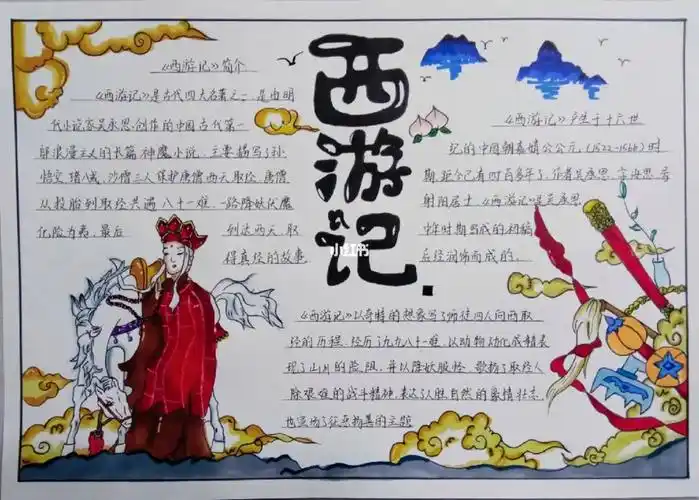 西游记
小红书
《西游记》简介
《西游记》是古代四大名著之一，是由明
代小说家吴承恩创作的中国古代第一
部浪漫主义的长篇神魔小说，主要描写了孙
悟空，猪八戒，沙僧三人保护唐僧西天取经，唐僧
从投胎到取经共遇八十一难，一路降妖伏魔
化险为夷，最后到达西天，取
得真经的故事
《西游记》产生于十六世
纪的中国朝嘉靖公公元，(1522-1566)时
期，距今已有四百多年了，作者吴承恩，字汝忠，号
射阳居士，《西游记》是吴承恩
中年时期写成的初稿
后经润饰而成的。
《西游记》以奇特的想象写了师徒四人向西取
经的历程，经历了九九八十一难，以动物幻化成精表
现了山川的险，阻，并以降妖服怪，歌扬了取经人
除艰难的战斗精神，表达人胜自然的豪情壮志，
也宣扬了惩恶扬善的主题